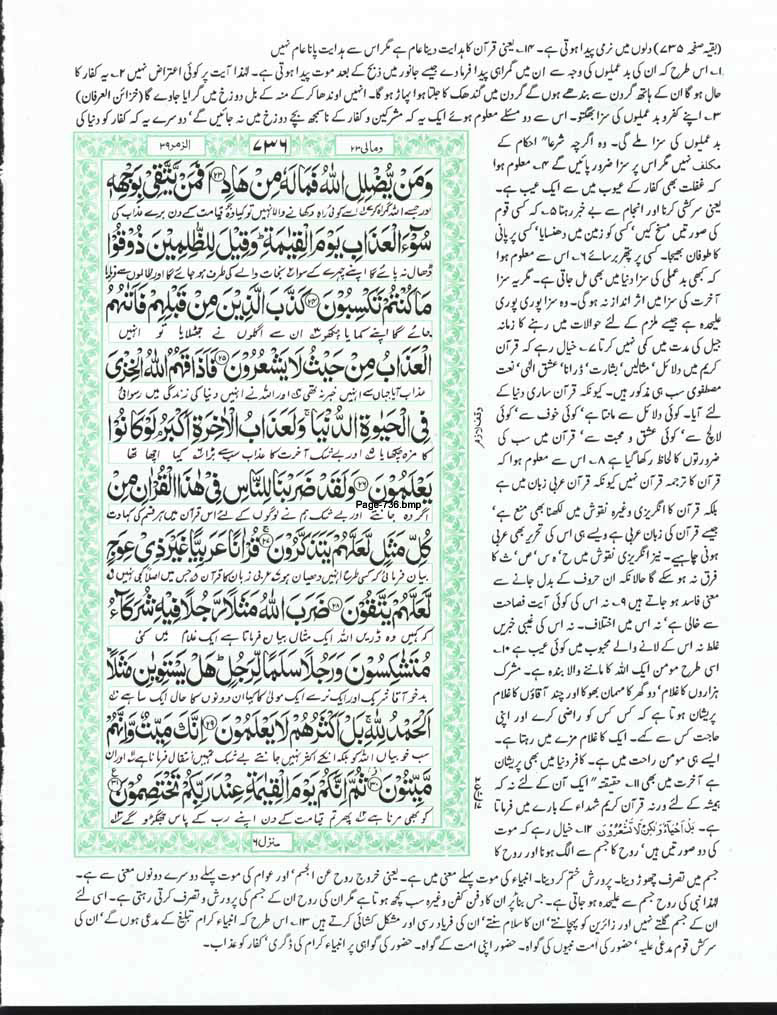 (بقیہ صفحہ ۷۳۵) دلوں میں نرمی پیدا ہوتی ہے۔ ۱۴؎ یعنی قرآن کا ہدایت دینا عام ہے مگر اس سے ہدایت پانا عام نہیں
۱؎ اس طرح کہ ان کی بد عملیوں کی وجہ سے ان میں گمراہی پیدا فرما دے جیسے جانور میں ذبح کے بعد موت پیدا ہوتی ہے۔ لہٰذا آیت پر کوئی اعتراض نہیں ۲؎ یہ کفار کا
حال ہو گا ان کے ہاتھ گردن سے بندھے ہوں گے گردن میں گندھک کا جلتا ہوا پہاڑ ہو گا۔ انہیں اوندھا کر کے منہ کے بل دوزخ میں گرایا جاوے گا (خزائن العرفان)
۳؎ اپنے کفر و بد عملیوں کی سزا بھگتو۔ اس سے دو مسئلے معلوم ہوئے ایک یہ کہ مشرکین و کفار کے ناسمجھ بچے دوزخ میں نہ جائیں گے' دوسرے یہ کہ کفار کو دنیا کی
بد عملیوں کی سزا ملے گی۔ وہ اگرچہ شرعا" احکام کے
مکلف نہیں مگر اس پر سزا ضرور پائیں گے ۴؎ معلوم ہوا
کہ غفلت بھی کفار کے عیوب میں سے ایک عیب ہے۔
یعنی سرکشی کرنا اور انجام سے بے خبر رہنا ۵؎ کہ کسی قوم
کی صورتیں مسخ کیں' کسی کو زمین میں دھنسایا' کسی پر پانی
کا طوفان بھیجا۔ کسی پر پتھر برسائے ۶؎ اس سے معلوم ہوا
کہ کبھی بد عملی کی سزا دنیا میں بھی مل جاتی ہے۔ مگر یہ سزا
آخرت کی سزا میں اثر انداز نہ ہو گی۔ وہ سزا پوری پوری
علیحدہ ہے جیسے ملزم کے لئے حوالات میں رہنے کا زمانہ
جیل کی مدت میں کمی نہیں کراتا ۷؎ خیال رہے کہ قرآن
کریم میں دلائل' مثالیں' بشارت' ڈرانا' عشق الٰہی' نعت
مصطفوی سب ہی مذکور ہیں۔ کیونکہ قرآن ساری دنیا کے
لئے آیا۔ کوئی دلائل سے مانتا ہے' کوئی خوف سے' کوئی
لالچ سے' کوئی عشق و محبت سے' قرآن میں سب کی
ضرورتوں کا لحاظ رکھا گیا ہے ۸؎ اس سے معلوم ہوا کہ
قرآن کا ترجمہ قرآن نہیں کیونکہ قرآن عربی زبان میں ہے
بلکہ قرآن کا انگریزی وغیرہ نقوش میں لکھنا بھی منع ہے'
جیسے قرآن کی زبان عربی ہے ویسے ہی اس کی تحریر بھی عربی
ہونی چاہیے۔ نیز انگریزی نقوش میں ح' ہ' س' ص' ث کا
فرق نہ ہو سکے گا حالانکہ ان حروف کے بدل جانے سے
معنی فاسد ہو جاتے ہیں ۹؎ نہ اس کی کوئی آیت فصاحت
سے خالی ہے' نہ اس میں اختلاف۔ نہ اس کی غیبی خبریں
غلط نہ اس کے لانے والے محبوب میں کوئی عیب ہے ۱۰؎
اسی طرح مومن ایک اللہ کا ماننے والا بندہ ہے۔ مشرک
ہزاروں کا غلام' دو گھر کا مہمان بھوکا اور چند آقاؤں کا غلام
پریشان ہوتا ہے کہ کس کس کو راضی کرے اور اپنی
حاجت کس سے کہے۔ ایک کا غلام مزے میں رہتا ہے۔
ایسے ہی مومن راحت میں ہے۔ کافر دنیا میں بھی پریشان
ہے آخرت میں بھی ۱۱؎ حقیقتہ" ایک آن کے لئے نہ کہ
ہمیشہ کے لئے ورنہ قرآن کریم شہداء کے بارے میں فرماتا
ہے۔ بَلْ اَحْيَآءٌ وَّلٰكِنْ لَّا تَشْعُرُوْنَ ۱۲؎ خیال رہے کہ موت
کی دو صورتیں ہیں' روح کا جسم سے الگ ہونا اور روح کا
الزمر ۳۹
۷۳۶
ومالی ۲۳
وَمَنْ يُّضْلِلِ اللّٰهُ فَمَا لَهٗ مِنْ هَادٍ ۝۲۳ اَفَمَنْ يَّتَّقِيْ بِوَجْهِهٖ
اور جسے اللہ گمراہ کرے اسے کوئی راہ دکھانے والا نہیں تو کیا وہ جو قیامت کے دن برے عذاب کی
سُوْٓءَ الْعَذَابِ يَوْمَ الْقِيٰمَةِ ؕ وَقِيْلَ لِلظّٰلِمِيْنَ ذُوْقُوْا
ڈھال نہ پائے گا اپنے چہرے کے سوا نجات والے کی طرح ہو جائے گا اور ظالموں سے فرمایا
مَا كُنْتُمْ تَكْسِبُوْنَ ۝۲۴ كَذَّبَ الَّذِيْنَ مِنْ قَبْلِهِمْ فَاَتٰىهُمُ
جائے گا اپنا کمایا چکھو ان سے اگلوں نے جھٹلایا تو انہیں
الْعَذَابُ مِنْ حَيْثُ لَا يَشْعُرُوْنَ ۝۲۵ فَاَذَاقَهُمُ اللّٰهُ الْخِزْيَ
عذاب آیا جہاں سے انہیں خبر نہ تھی اور اللہ نے انہیں دنیا کی زندگی میں رسوائی
فِي الْحَيٰوةِ الدُّنْيَا ۚ وَلَعَذَابُ الْاٰخِرَةِ اَكْبَرُ ۘ لَوْ كَانُوْا
کا مزہ چکھایا اور بے شک آخرت کا عذاب سب سے بڑا کیا اچھا تھا
يَعْلَمُوْنَ ۝۲۶ وَلَقَدْ ضَرَبْنَا لِلنَّاسِ فِيْ هٰذَا الْقُرْاٰنِ مِنْ
Page-736.bmp
اگر وہ جانتے اور بے شک ہم نے لوگوں کے لئے اس قرآن میں ہر قسم کی کہاوت
كُلِّ مَثَلٍ لَّعَلَّهُمْ يَتَذَكَّرُوْنَ ۝۲۷ قُرْاٰنًا عَرَبِيًّا غَيْرَ ذِيْ عِوَجٍ
بیان فرمائی کہ کسی طرح انہیں دھیان ہو عربی زبان کا قرآن جس میں اصلاً کجی نہیں
لَّعَلَّهُمْ يَتَّقُوْنَ ۝۲۸ ضَرَبَ اللّٰهُ مَثَلًا رَّجُلًا فِيْهِ شُرَكَآءُ
کہ کہیں وہ ڈریں اللہ ایک مثال بیان فرماتا ہے ایک غلام میں کئی
مُتَشٰكِسُوْنَ وَرَجُلًا سَلَمًا لِّرَجُلٍ ؕ هَلْ يَسْتَوِيٰنِ مَثَلًا ؕ
بدخو آقا شریک اور ایک نرے ایک مولیٰ کا کیا ان دونوں کا حال ایک سا ہے
اَلْحَمْدُ لِلّٰهِ ۚ بَلْ اَكْثَرُهُمْ لَا يَعْلَمُوْنَ ۝۲۹ اِنَّكَ مَيِّتٌ وَّاِنَّهُمْ
سب خوبیاں اللہ کو بلکہ انکے اکثر نہیں جانتے بے شک تمہیں انتقال فرمانا ہے اور ان
مَّيِّتُوْنَ ۝۳۰ ثُمَّ اِنَّكُمْ يَوْمَ الْقِيٰمَةِ عِنْدَ رَبِّكُمْ تَخْتَصِمُوْنَ ۝۳۱
کو بھی مرنا ہے پھر تم قیامت کے دن اپنے رب کے پاس جھگڑو گے
منزل ۶
جسم میں تصرف چھوڑ دینا۔ پرورش ختم کر دینا۔ انبیاء کی موت پہلے معنی میں ہے۔ یعنی خروج روح عن الجسم' اور عوام کی موت پہلے دوسرے دونوں معنی سے ہے۔
لہٰذا نبی کی روح جسم سے علیحدہ ہو جاتی ہے۔ جس بنا پر ان کا دفن کفن وغیرہ سب کچھ ہوتا ہے مگر ان کی روح ان کے جسم کی پرورش و تصرف کرتی رہتی ہے۔ اسی لئے
ان کے جسم گلتے نہیں اور زائرین کو پہچانتے' ان کا سلام سنتے' ان کی فریاد رسی اور مشکل کشائی کرتے ہیں ۱۳؎ اس طرح کہ انبیاء کرام تبلیغ کے مدعی ہوں گے' ان کی
سرکش قوم مدعیٰ علیہ' حضور کی امت نبیوں کی گواہ۔ حضور اپنی امت کے گواہ۔ حضور کی گواہی پر انبیاء کرام کی ڈگری' کفار کو عذاب۔